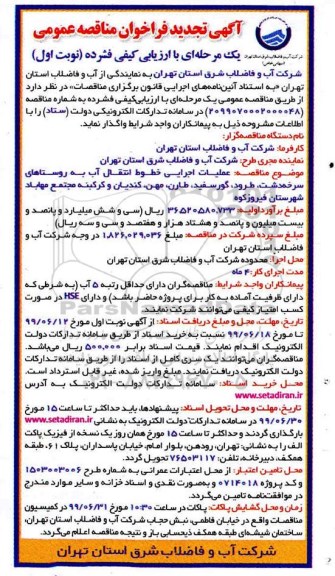 آگهی تجدید فراخوان مناقصه عمومی
یک مرحله‌ای با ارزیابی کیفی فشرده (نوبت اول)
شرکت آب و فاضلاب شرق استان تهران به نمایندگی از آب و فاضلاب استان
تهران «به استناد آئین‌نامه‌های اجرایی قانون برگزاری مناقصات» در نظر دارد
از طریق مناقصه عمومی یک مرحله‌ای با ارزیابی‌کیفی فشرده به شماره مناقصه
(۲۰۹۹۰۰۷۰۰۲۰۰۰۰۴۸) در سامانه تدارکات الکترونیکی دولت (ستاد) را با
اطلاعات مشروحه ذیل به پیمانکاران واجد شرایط واگذار نماید.
نام دستگاه مناقصه‌گزار:
کارفرما: شرکت آب و فاضلاب استان تهران
نماینده مجری طرح: شرکت آب و فاضلاب شرق استان تهران
موضوع مناقصه: عملیات اجرایی خطوط انتقال آب به روستاهای
سرخده‌شت، طرود، گورسفید، طارن، مهن، کندیان و کرکبنه مجتمع مهاباد
شهرستان فیروزکوه
مبلغ برآورد اولیه: ۳۶۵۲۰۵۸۰۷۳۳ ریال (سی و شش میلیارد و پانصد و
بیست میلیون و پانصد و هشتاد هزار و هفتصد و سی و سه ریال)
مبلغ سپرده شرکت در مناقصه: مبلغ ۱،۸۲۶،۰۲۹،۰۳۶ در وجه شرکت آب و
فاضلاب استان تهران
محل اجرا: محدوده شرکت آب و فاضلاب شرق استان تهران
مدت اجرای کار: ۴ ماه
پیمانکاران واجد شرایط: مناقصه‌گران دارای حداقل رتبه ۵ آب (به شرطی که
دارای ظرفیت آماده به کار برای پروژه حاضر باشد) و دارای HSE در صورت
کسب امتیاز کیفی می‌توانند شرکت نمایند
تاریخ، مهلت، محل و مبلغ دریافت اسناد: از آگهی نوبت اول مورخ ۹۹/۰۶/۱۲
تا مورخ ۹۹/۰۶/۱۸ نسبت به خرید اسناد از طریق سامانه تدارکات دولت
الکترونیک اقدام نمایند. قیمت اسناد برابر ۵۰۰،۰۰۰ ریال می‌باشد.
مناقصه‌گران می‌توانند یک سری کامل از اسناد را از طریق سامانه تدارکات
دولت الکترونیک دریافت نمایند. مبلغ واریز شده، غیر قابل استرداد است.
محل خرید اسناد: سامانه تدارکات دولت الکترونیک به آدرس
www.setadiran.ir
تاریخ، مهلت و محل تحویل اسناد: پیشنهادها، باید حداکثر تا ساعت ۱۵ مورخ
۹۹/۰۶/۳۰ در سامانه تدارکات دولت الکترونیک به نشانی www.setadiran.ir
بارگذاری گردند و حداکثر تا ساعت ۱۵ مورخ همان روز یک نسخه از فیزیک پاکت
الف را به نشانی: تهران، رودهن، بلوار امام، خیابان پاسداران، پلاک ۶۱، طبقه
همکف، دبیرخانه، تلفن: ۷۶۵۰۳۱۱۷ تحویل دهند.
محل تامین اعتبار: از محل اعتبارات عمرانی به شماره طرح ۱۵۰۳۰۰۳۰۰۶
و کد پروژه ۰۷۱۴۰۱۸ و بصورت نقدی و اسناد خزانه و سایر موارد مندرج
در موافقتنامه تامین می‌گردد.
زمان و محل گشایش پاکات: پاکات در ساعت ۱۰:۳۰ مورخ ۹۹/۰۶/۳۱ در کمیسیون
مناقصات واقع در خیابان فاطمی، نبش حجاب شرکت آب و فاضلاب استان تهران،
ساختمان شیشه‌ای طبقه همکف ذیحسابی باز و متعاقباً نتیجه مناقصه اعلام می‌گردد.
شرکت آب و فاضلاب شرق استان تهران